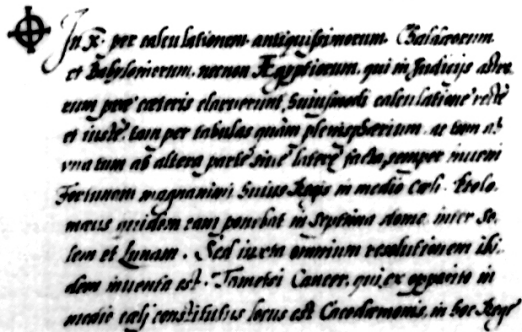 In X.ᵃ per calculationem antiquissimorum. Chaldæorum
et Babyloniorum, necnon Ægyptiorum, qui in Judicijs astro
rum præ cæteris claruerunt, huiusmodi calculatione recte
et iuste, tam per tabulas quàm plenisphærium, ac tum ab
vna tum ab altera parte siue latere facta, semper inueni
Fortunam magnanimi huius Regis in medio Cæli. Ptolo
mæus quidem eam ponebat in septima domo, inter So
lem et Lunam. Sed iuxta omnium resolutionem ibi
dem inuenta est. Tametsi Cancer, qui ex opposito in
medio cælj constitutus locus est Cacodæmonis, in hoc Rege